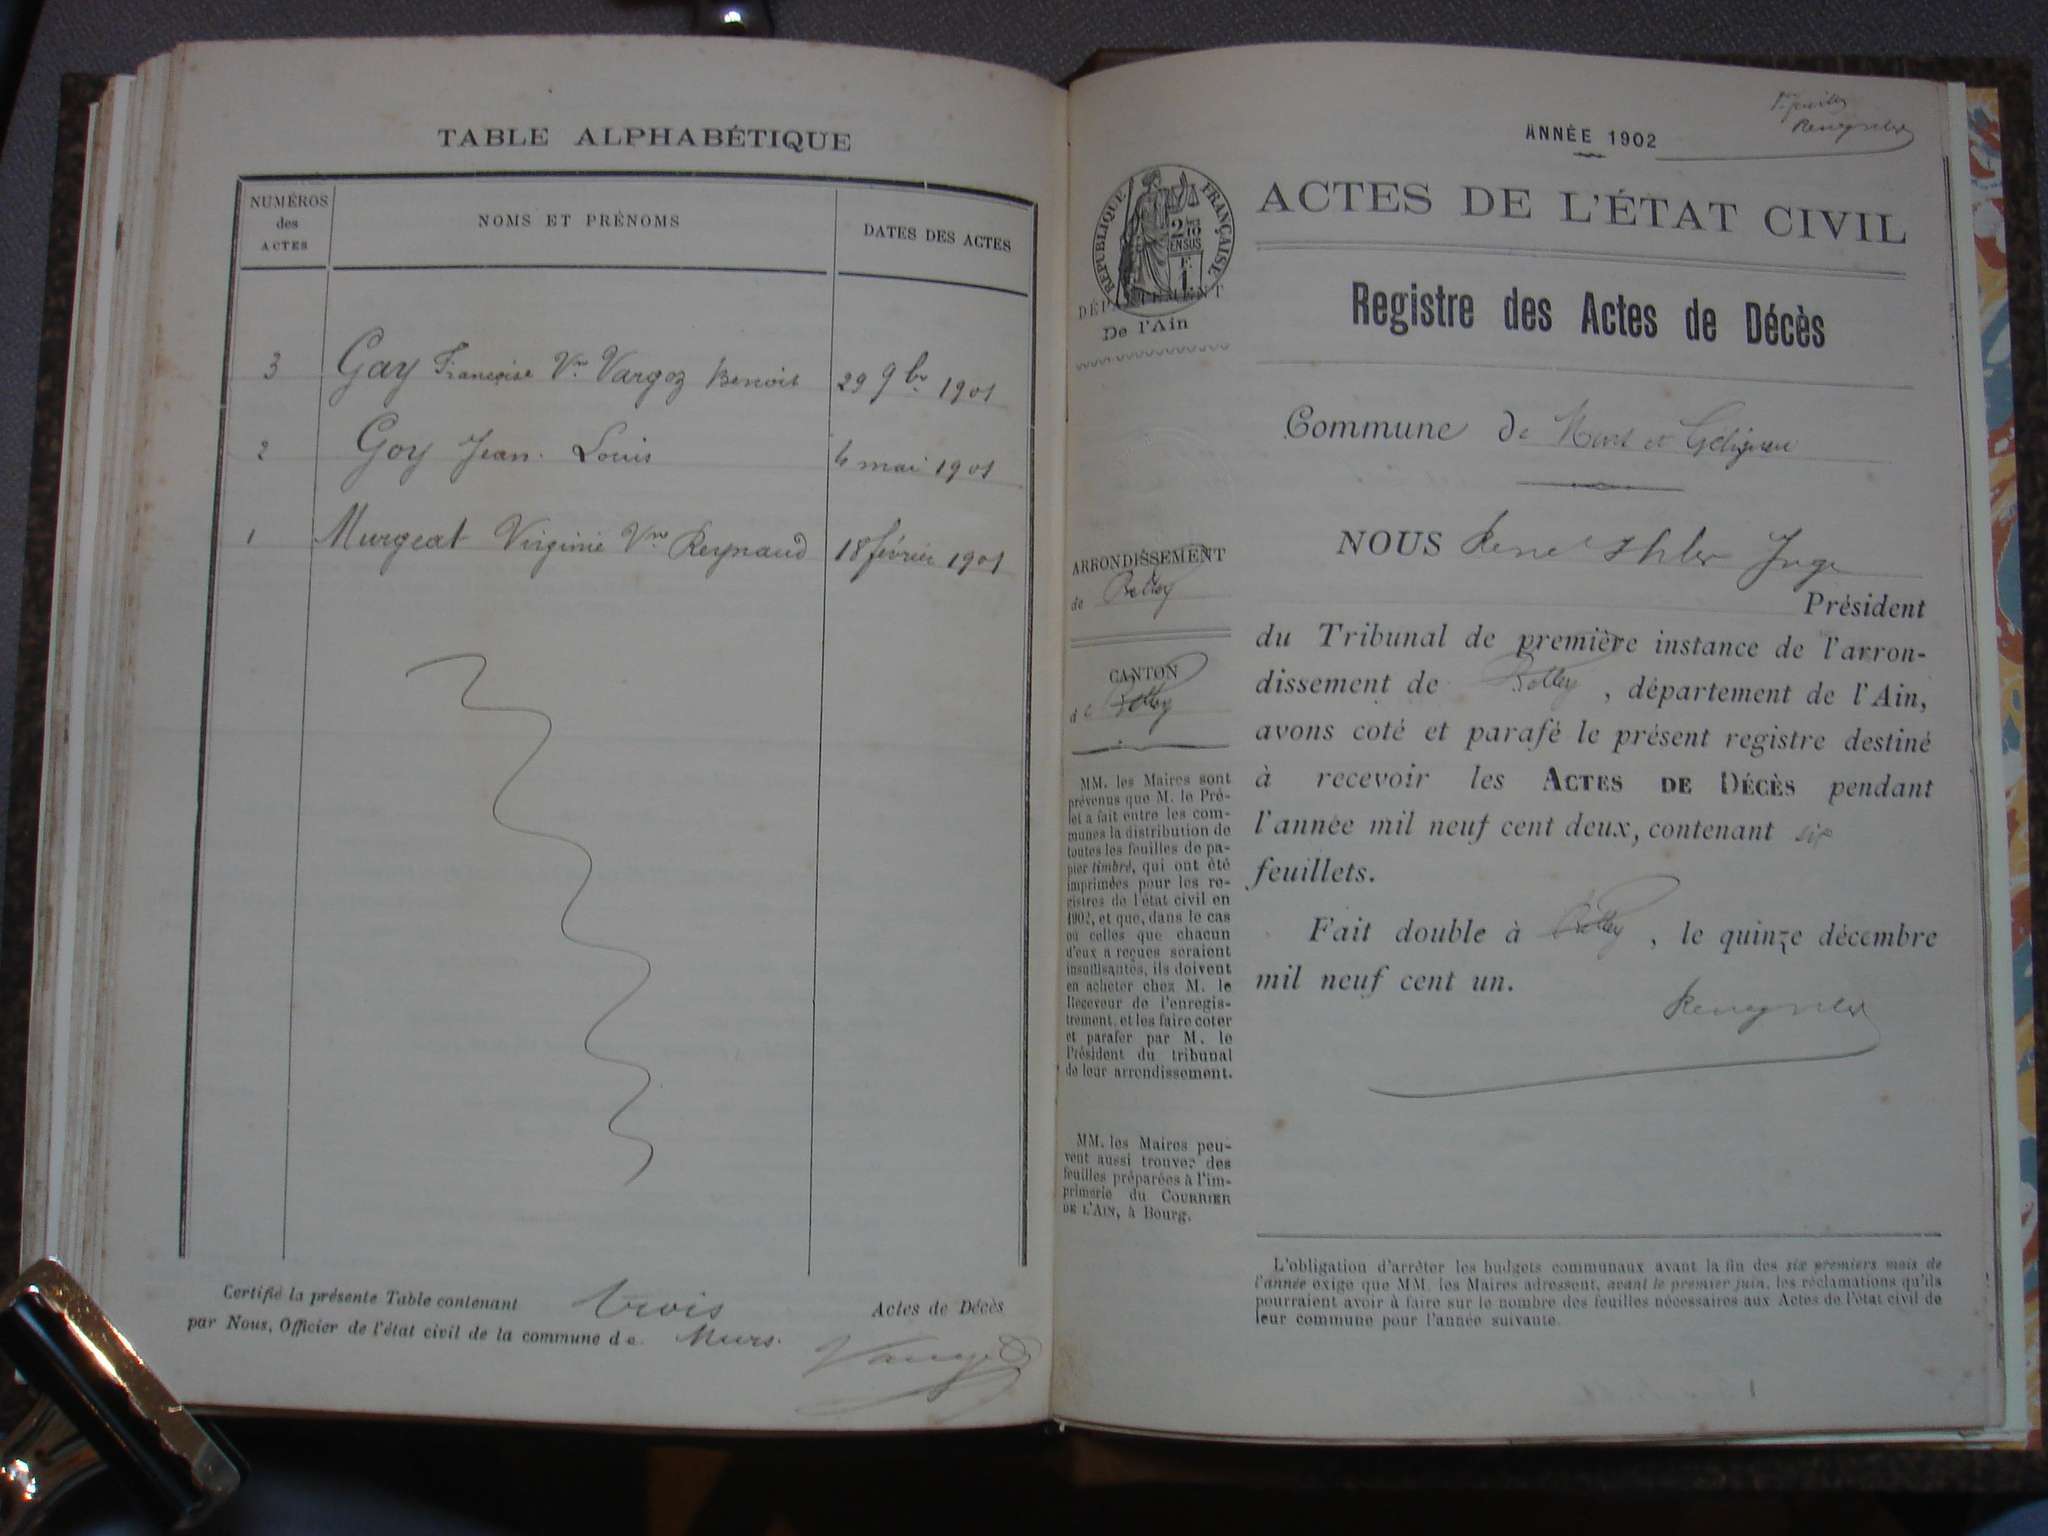 TABLE ALPHABÉTIQUE
NUMÉROS
des
ACTES
NOMS ET PRÉNOMS
DATES DES ACTES
3 Gay Françoise Vve Vargoz Benoit 29 9bre 1901
2 Goy Jean Louis 4 mai 1901
1 Murgeat Virginie Vve Reynaud 18 février 1901
Certifié la présente Table contenant trois Actes de Décès
par Nous, Officier de l'état civil de la commune de Murs.
ANNÉE 1902
RÉPUBLIQUE FRANÇAISE
2/10
EN SUS
ACTES DE L'ÉTAT CIVIL
DÉPARTEMENT
De l'Ain
Registre des Actes de Décès
Commune de Murs et Gélignieu
ARRONDISSEMENT
de Belley
CANTON
de Belley
MM. les Maires sont
prévenus que M. le Pré-
fet a fait entre les com-
munes la distribution de
toutes les feuilles de pa-
pier timbré, qui ont été
imprimées pour les re-
gistres de l'état civil en
1902, et que, dans le cas
où celles que chacun
d'eux a reçues seraient
insuffisantes, ils doivent
en acheter chez M. le
Receveur de l'enregis-
trement, et les faire coter
et parafer par M. le
Président du tribunal
de leur arrondissement.
MM. les Maires peu-
vent aussi trouver des
feuilles préparées à l'im-
primerie du COURRIER
DE L'AIN, à Bourg.
NOUS René Juge
Président
du Tribunal de première instance de l'arron-
dissement de Belley, département de l'Ain,
avons coté et parafé le présent registre destiné
à recevoir les ACTES DE DÉCÈS pendant
l'année mil neuf cent deux, contenant six
feuillets.
Fait double à Belley, le quinze décembre
mil neuf cent un.
L'obligation d'arrêter les budgets communaux avant la fin des six premiers mois de
l'année exige que MM. les Maires adressent, avant le premier juin, les réclamations qu'ils
pourraient avoir à faire sur le nombre des feuilles nécessaires aux Actes de l'état civil de
leur commune pour l'année suivante.